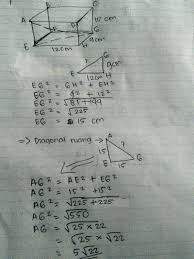 A
E
E
G
15 cm
12cm
H
9cm
G
9cm
E
12cm
H
EG² = GH² + EH²
EG² = 9² + 12²
EG² = √81+144
EG² = √225
EG = 15 cm
=> Diagonal ruang =
A
?
15
E
15
G
AG² = AE² + EG²
AG² = 15² + 15²
AG² = √225 + 225
AG² = √550
AG = √25 x 22
= √25 x √22
= 5√22